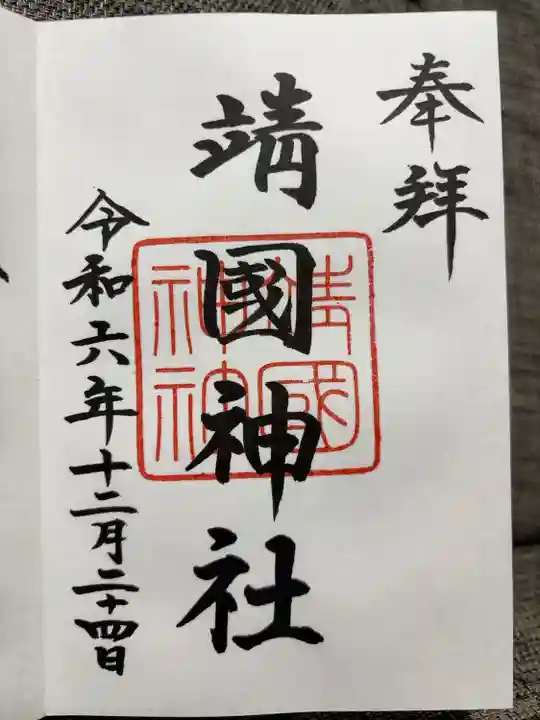 奉拜
靖國神社
靖國神社
令和六年十二月二十四日